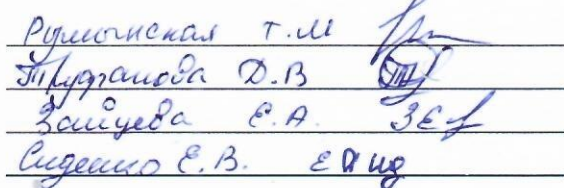 Румынская Т.М
Труфанова Д.В
Зайцева Е.А.
Сиденко Е.В.